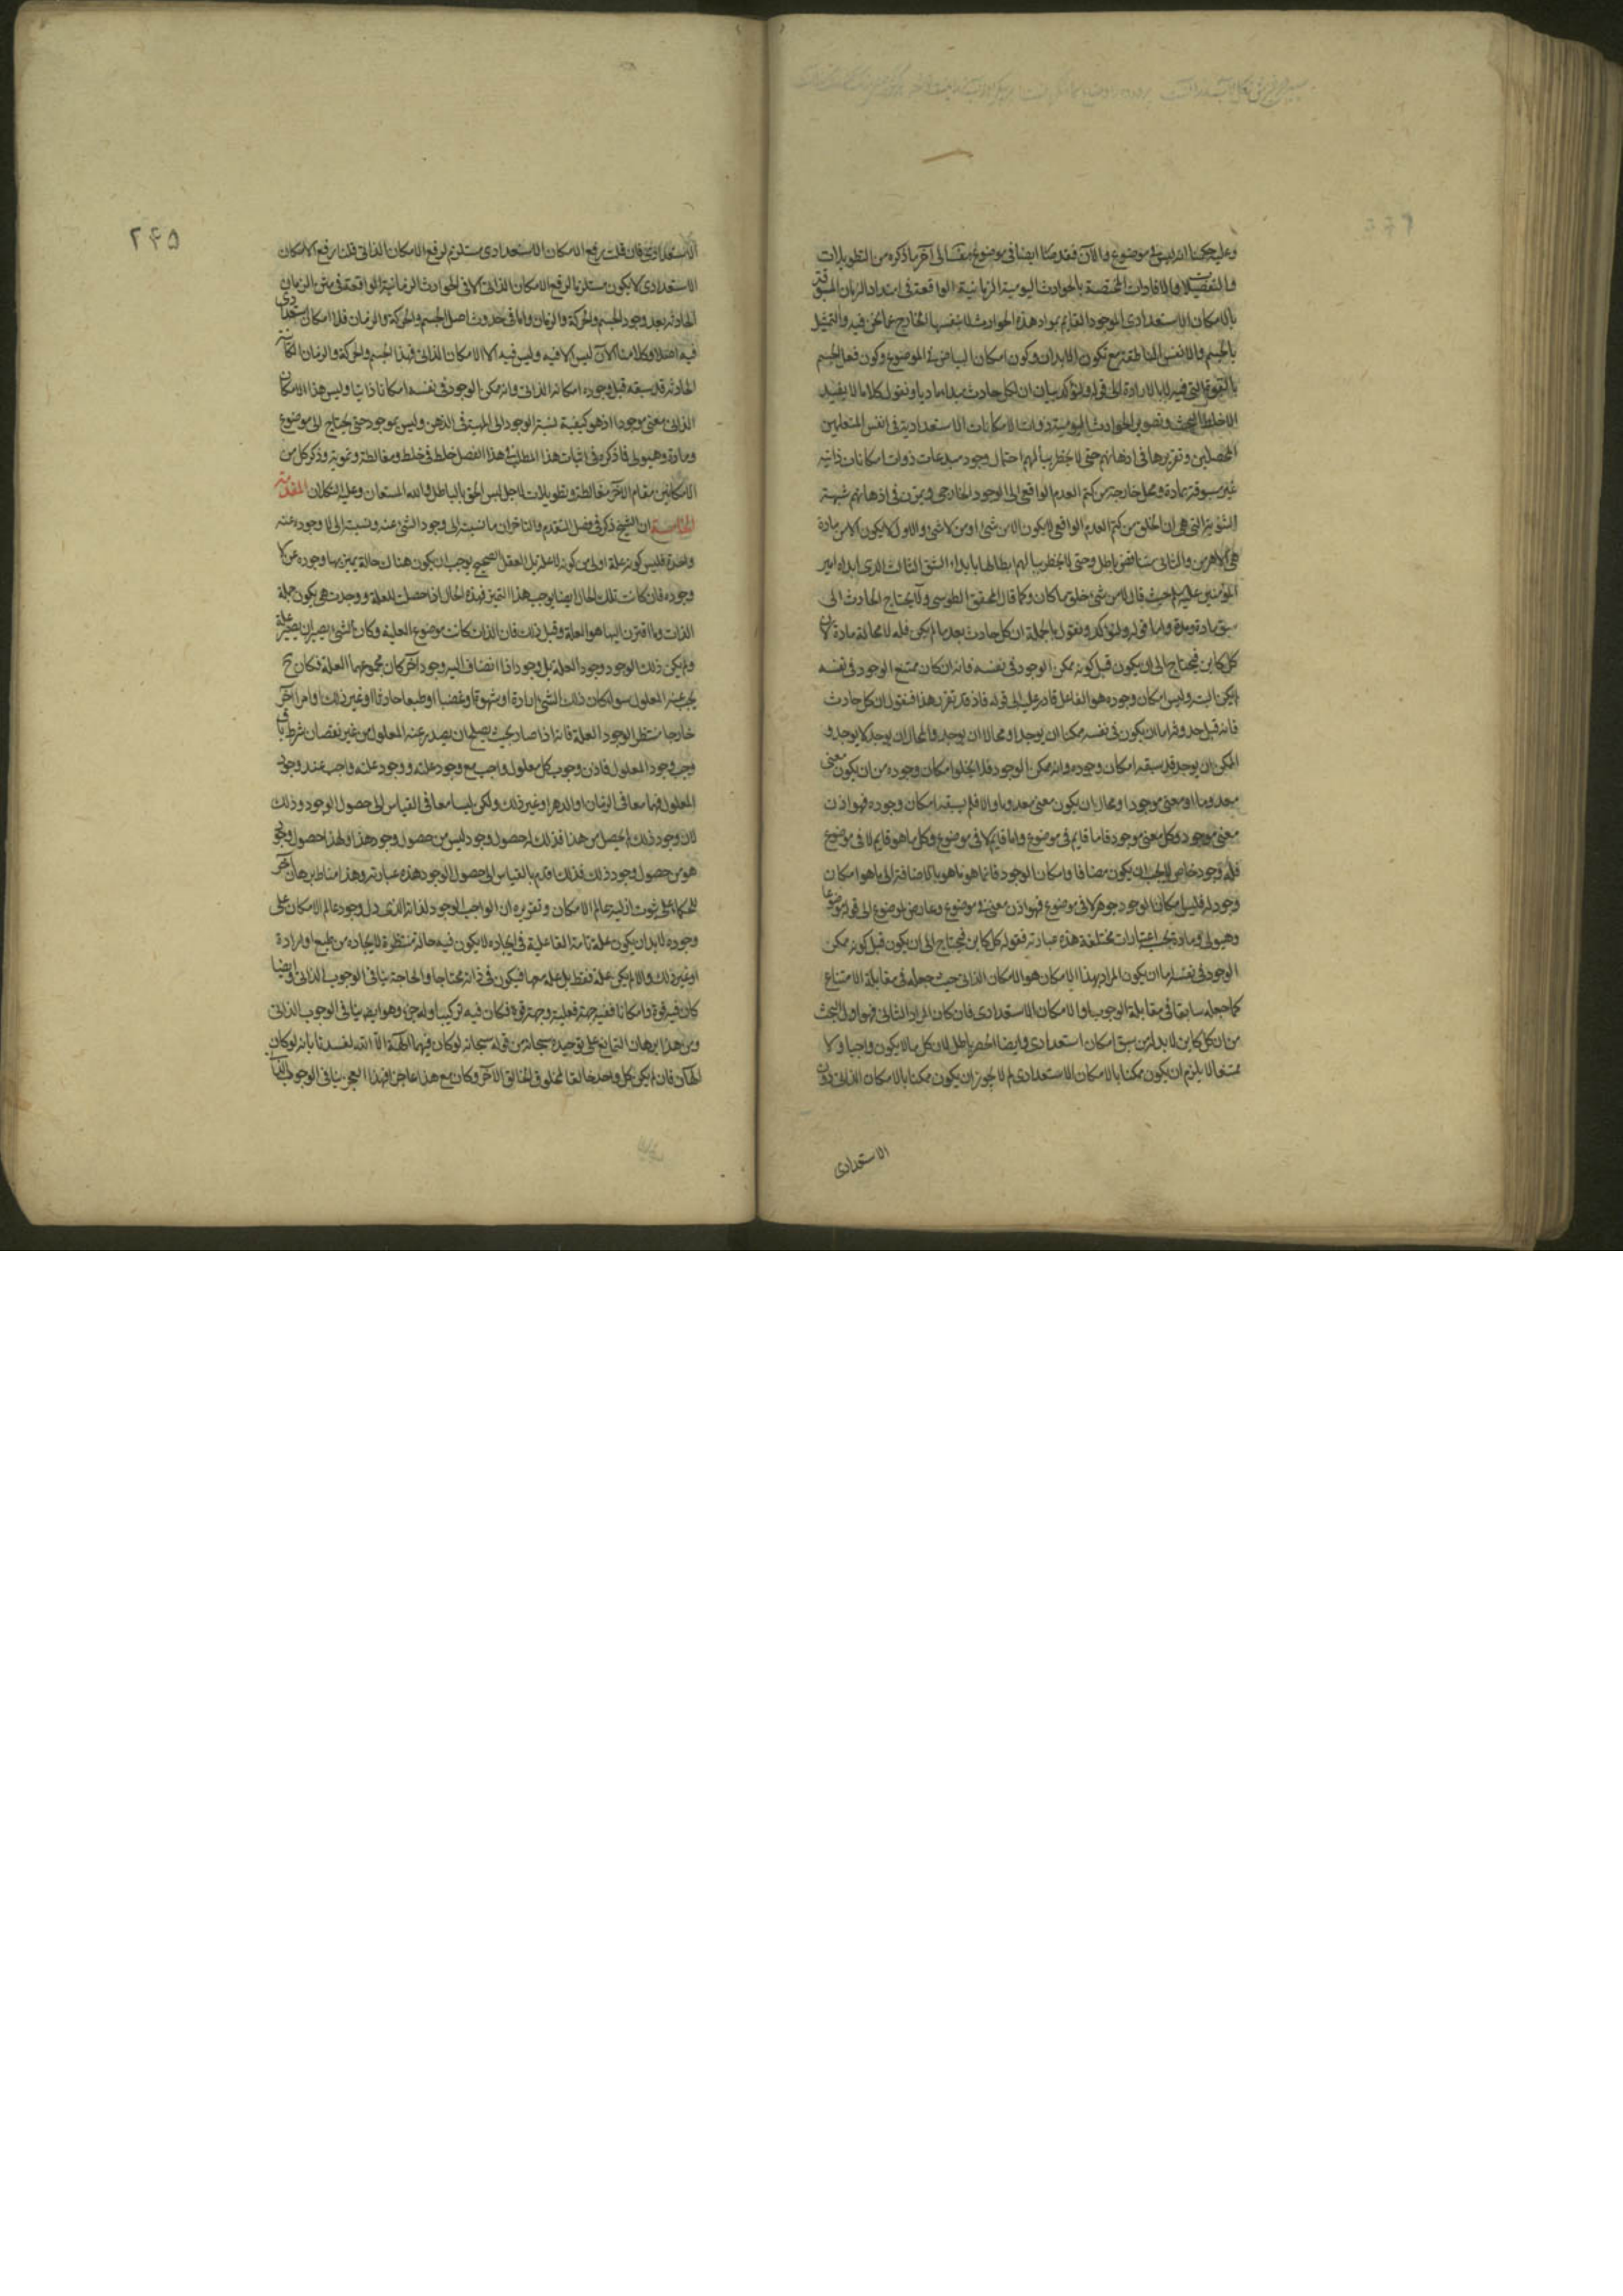 وعليه حكمنا انه ليس في موضوع والآن فقدمنا ايضا في موضوع نفسا الى آخر ما ذكره من التطويلات
والتفصيلات والافادات المختصة بالحوادث اليومية الزمانية الواقعة في امتداد الزمان المسبوقة
بالامكان الاستعدادي الموجود القايم بمواد هذه الحوادث لا بنفسها الخارج عما نحن فيه والتمثيل
بالجسم والانفس الناطقة مع تكون الابدان وكون امكان البياض في الموضوع وكون فعل الجسم
بالقوة التي فيه لا بالارادة الى قوله ولنؤكد بيان ان لكل حادث مبدا ماديا ونقول كلاما لا يفيد
الا خلط البحث وتصوير الحوادث اليومية ذوات الامكانات الاستعدادية في انفس المتعلمين
المحصلين وتقريرها في اذهانهم حتى لا يخطر ببالهم احتمال وجود مبدعات ذوات امكانات ذاتية
غير مسبوقة بمادة ومحل خارجة من كتم العدم الواقعي الى الوجود الخارجي و في اذهانهم شبهة
الثنوية التي هي ان الخلق من كتم العدم الواقعي لا يكون الا من شئ او من لا شئ والاول لا يكون الا من مادة
هي والثاني متناقض باطل وحتى لا يخطر ببالهم ابطالها بابداء الشق الثالث الذي ابداه امير
المؤمنين عليه السلم حيث قال لا من شئ خلق ما كان وكما قال المحقق الطوسي ولا يحتاج الحادث الى
سبق مادة ومدة واما قوله ولنؤكد ونقول بالجملة ان كل حادث بعد ما لم يكن فله لا محالة مادة لان
كل كاين فيحتاج الى ان يكون قبل كونه ممكن الوجود في نفسه فانه ان كان ممتنع الوجود في نفسه
لم يكن البتة وليس امكان وجوده هو ان الفاعل قادر عليه الى قوله فاذ قد تقرر هذا فنقول ان كل حادث
فانه قبل حدوثه اما ان يكون في نفسه ممكنا ان يوجد او محالا ان يوجد والمحال ان يوجد لا يوجد و
الممكن ان يوجد قد سبقه امكان وجوده وانه ممكن الوجود فلا يخلو امكان وجوده من ان يكون معنى
معدوما او معنى موجودا ومحال ان يكون معنى معدوما والا فلم يسبقه امكان وجوده فهو اذن
معنى موجود وكل معنى موجود فاما قايم في موضوع واما قايم لا في موضوع وكل ما هو قايم لا في موضوع
فله وجود خاص لا يجب ان يكون مضافا وامكان الوجود فانما هو ما هو بالاضافة الى ما هو امكان
وجود له فليس امكان الوجود جوهرا لا في موضوع فهو اذن معنى في موضوع وعارض لموضوع الى قوله موضوعا
وهيولى ومادة بحسب اعتبارات مختلفة هذه عبارته فقوله كل كاين فيحتاج الى ان يكون قبل كونه ممكن
الوجود في نفسه اما ان يكون المراد بهذا الامكان هو الامكان الذاتي حيث جعله في مقابلة الامتناع
كما جعله سابقا في مقابلة الوجوب او الامكان الاستعدادي فان كان المراد الثاني فهو اول البحث
من ان كل كاين لا بد له من سبق امكان استعدادي وايضا الحصر باطل لان كل ما لا يكون واجبا ولا
ممتنعا لا يلزم ان يكون ممكنا بالامكان الاستعدادي لم لا يجوز ان يكون ممكنا بالامكان الذاتي دون
الاستعدادي
۲۴۵
الاستعدادي فان قلت رفع الامكان الاستعدادي مستلزم لرفع الامكان الذاتي قلنا رفع الامكان
الاستعدادي لا يكون مستلزما لرفع الامكان الذاتي الا في الحوادث الزمانية الواقعة في متن الزمان
الحادثة بعد وجود الجسم والحركة والزمان واما في حدوث اصل الجسم والحركة والزمان فلا امكان استعدادي
فيه اصلا وكلامنا الآن ليس الا فيه وليس فيه الا الامكان الذاتي فهذا الجسم والحركة والزمان الكاينة
الحادثة قد سبقه قبل وجوده امكانه الذاتي وانه ممكن الوجود في نفسه امكانا ذاتيا وليس هذا الامكان
الذاتي معنى موجودا اذ هو كيفية نسبة الوجود الى المهية في الذهن وليس بموجود حتى يحتاج الى موضوع
ومادة وهيولى فما ذكره في اثبات هذا المطلب في هذا الفصل خلط في خلط ومغالطة وتمويه وذكر كل من
الامكانين مقام الآخر مغالطة وتطويلات لاجل لبس الحق بالباطل والله المستعان وعليه التكلان المقدمة
الخامسة ان الشيخ ذكر في فصل المتقدم والمتاخر ان ما نسبته الى وجود الشئ عنه ونسبته الى لا وجوده عنه
واحدة فليس كونه علة اولى من كونه لا علة بل العقل الصحيح يوجب ان يكون هناك حالة يميز بها وجوده عن لا
وجوده فان كانت تلك الحال ايضا يوجب هذا التميز فهذه الحال اذا حصلت للعلة ووجدت هي يكون جملة
الذات وما اقترن اليها هو العلة وقبل ذلك فان الذات كانت موضوع العلية وكان الشئ يصير ان يصير علة
ولم يكن ذلك الوجود وجود العلة بل وجودا اذا انضاف اليه وجود آخر كان مجموعهما العلة فكان ح
يجب عنه المعلول سواء كان ذلك الشئ ارادة او شهوة او غضبا او طبعا حادثا او غير ذلك او امرا آخر
خارجا منتظرا لوجود العلة فانه اذا صار بحيث يصلح ان يصدر عنه المعلول من غير نقصان شرط باق
وجب وجود المعلول فاذن وجوب كل معلول واجب مع وجود علته ووجود علته واجب عنه وجود
المعلول فهما معا في الزمان او الدهر او غير ذلك ولكن ليسا معا في القياس الى حصول الوجود وذلك
لان وجود ذلك لم يحصل من هذا فذلك له حصول وجود ليس من حصول وجود هذا ولهذا حصول وجود
هو من حصول وجود ذلك فذلك اقدم بالقياس الى حصول الوجود هذه عبارته وهذا مناط برهان آخر
للحكماء على ثبوت ازلية عالم الامكان وتقريره ان الواجب الوجود لذاته الذي دل وجود عالم الامكان على
وجوده لا بد ان يكون علة تامة الفاعلية في ايجاده لا يكون فيه حالة منتظرة لايجاده من طبع او ارادة
او غير ذلك والا لم يكن علة فقط بل علة معها فيكون في ذاته محتاجا والحاجة ينافي الوجوب الذاتي وايضا
كان فيه قوة وامكانا ففيه جهة فعلية وجهة قوة فكان فيه تركيبا وله جزء وهو ايضا ينافي الوجوب الذاتي
ومن هذا برهان التمانع على توحيده سبحانه من قوله سبحانه لو كان فيهما آلهة الا الله لفسدتا بانه لو كان
الهان فان لم يكن كل واحد خالقا لمخلوق الخالق الآخر وكان مع هذا عاجزا فهذا العجز ينافي الوجوب الذاتي